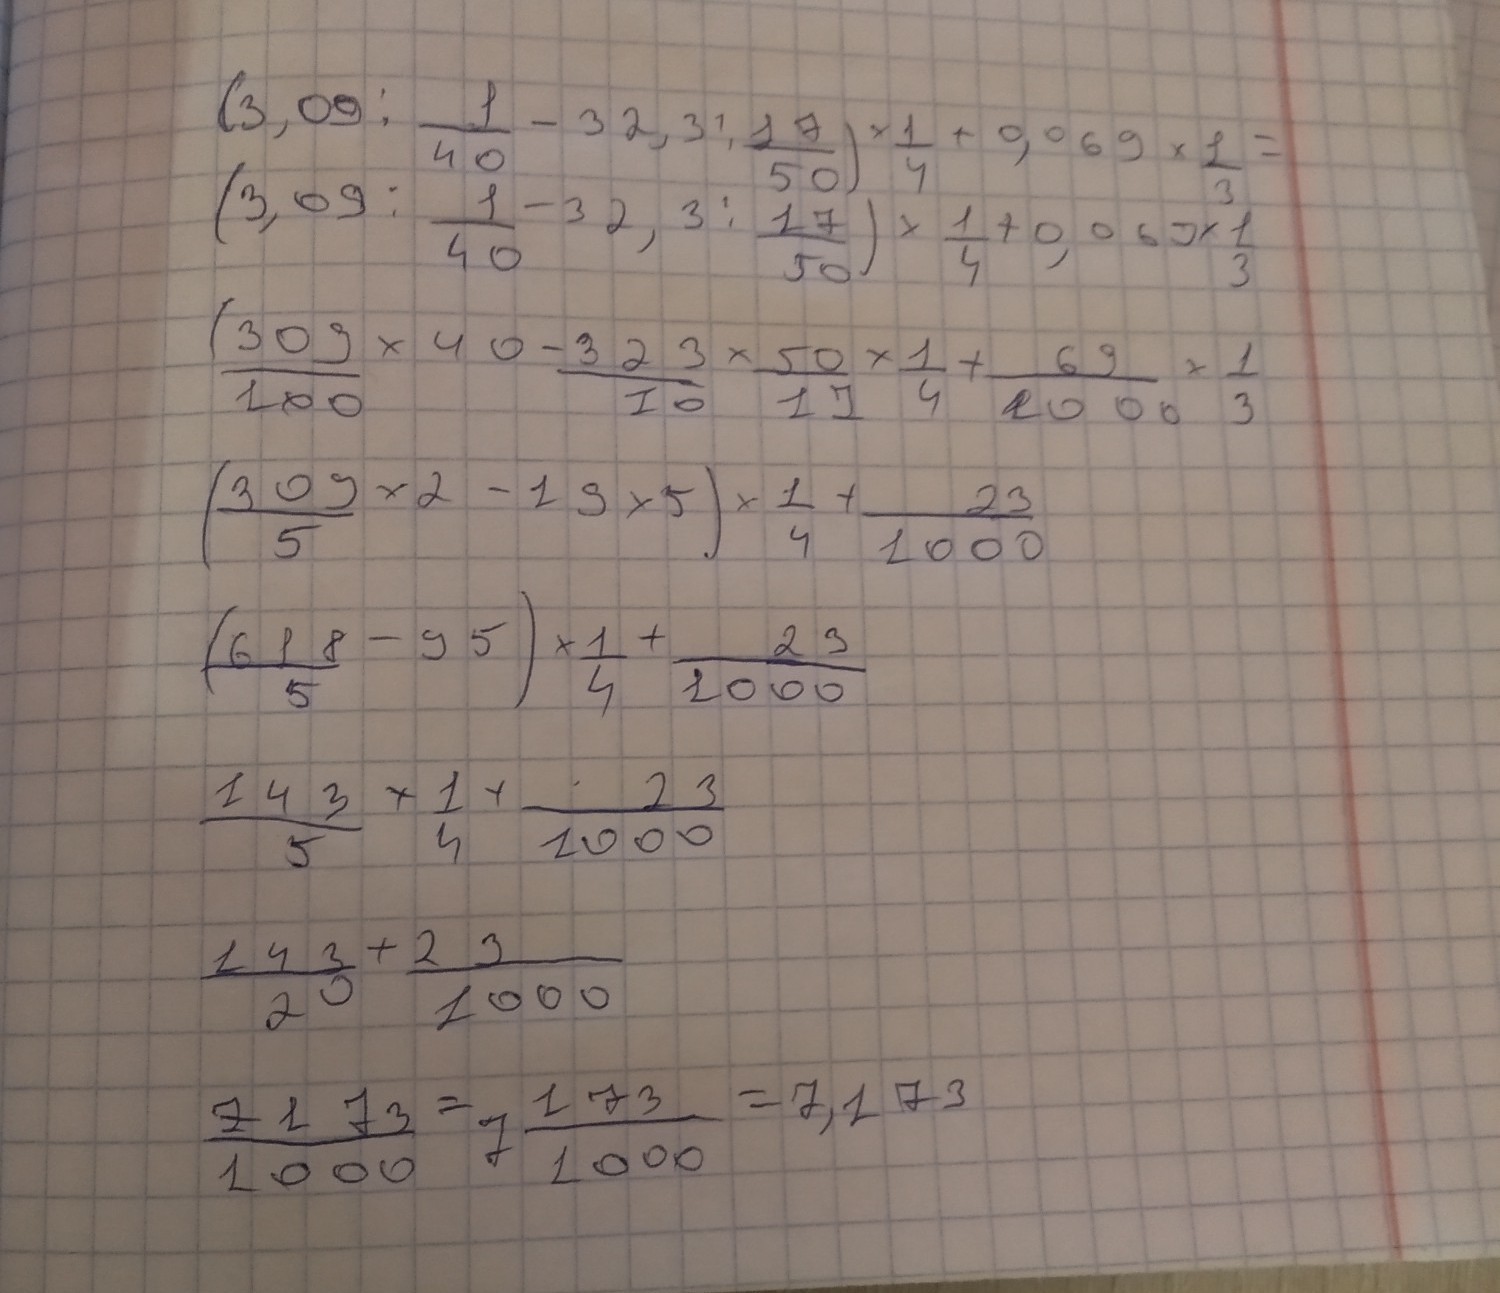 (3,09 : 1/40 - 32,3 : 17/50) × 1/4 + 0,069 × 1/3 =
(3,09 : 1/40 - 32,3 : 17/50) × 1/4 + 0,069 × 1/3
(309/100 × 40 - 323/10 × 50/17 × 1/4 + 69/1000 × 1/3
(309/5 × 2 - 19 × 5) × 1/4 + 23/1000
(618/5 - 95) × 1/4 + 23/1000
143/5 × 1/4 + 23/1000
143/20 + 23/1000
7173/1000 = 7 173/1000 = 7,173